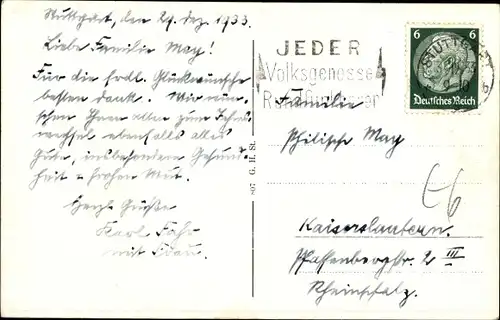 Stuttgart, den 29. Dez. 1933.
Liebe Familie May!
Für die frdl. Glückwünsche
besten Dank. Wir wün-
schen Ihnen allen zum Jahres
wechsel ebenfalls alles
Gute, insbesondere Gesund-
heit & frohen Mut.
Herzl. Grüße
Karl
mit Frau.
807 G. H. St.
JEDER
Volksgenosse
Rundfunkhörer
STUTTGART
6 6
Deutsches Reich
Familie
Philipp May
Kaiserslautern.
Pfaffenbergstr. 2 III
Rheinpfalz.